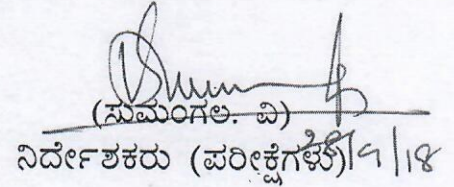 (ಸುಮಂಗಲ. ವಿ)
ನಿರ್ದೇಶಕರು (ಪರೀಕ್ಷೆಗಳು) /9/18